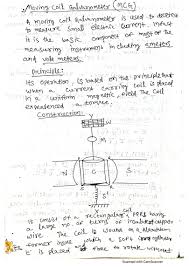 Moving Coil Galvanometer (MCG)
A moving coil galvanometer is used to detect
to measure small electric current.
It is the basic component of most of the
measuring instrument including ameters
and volt meters.
Principle:
Its operation is based on the principle that
when a current carrying coil is placed
in a uniform magnetic field the coil
experienced a torque.
Construction:
W
N
C
S
It consist of a rectangular coil having
a large no. of turns of insulated copper
wire. The coil is wound on a
former inside which a soft iron
is placed